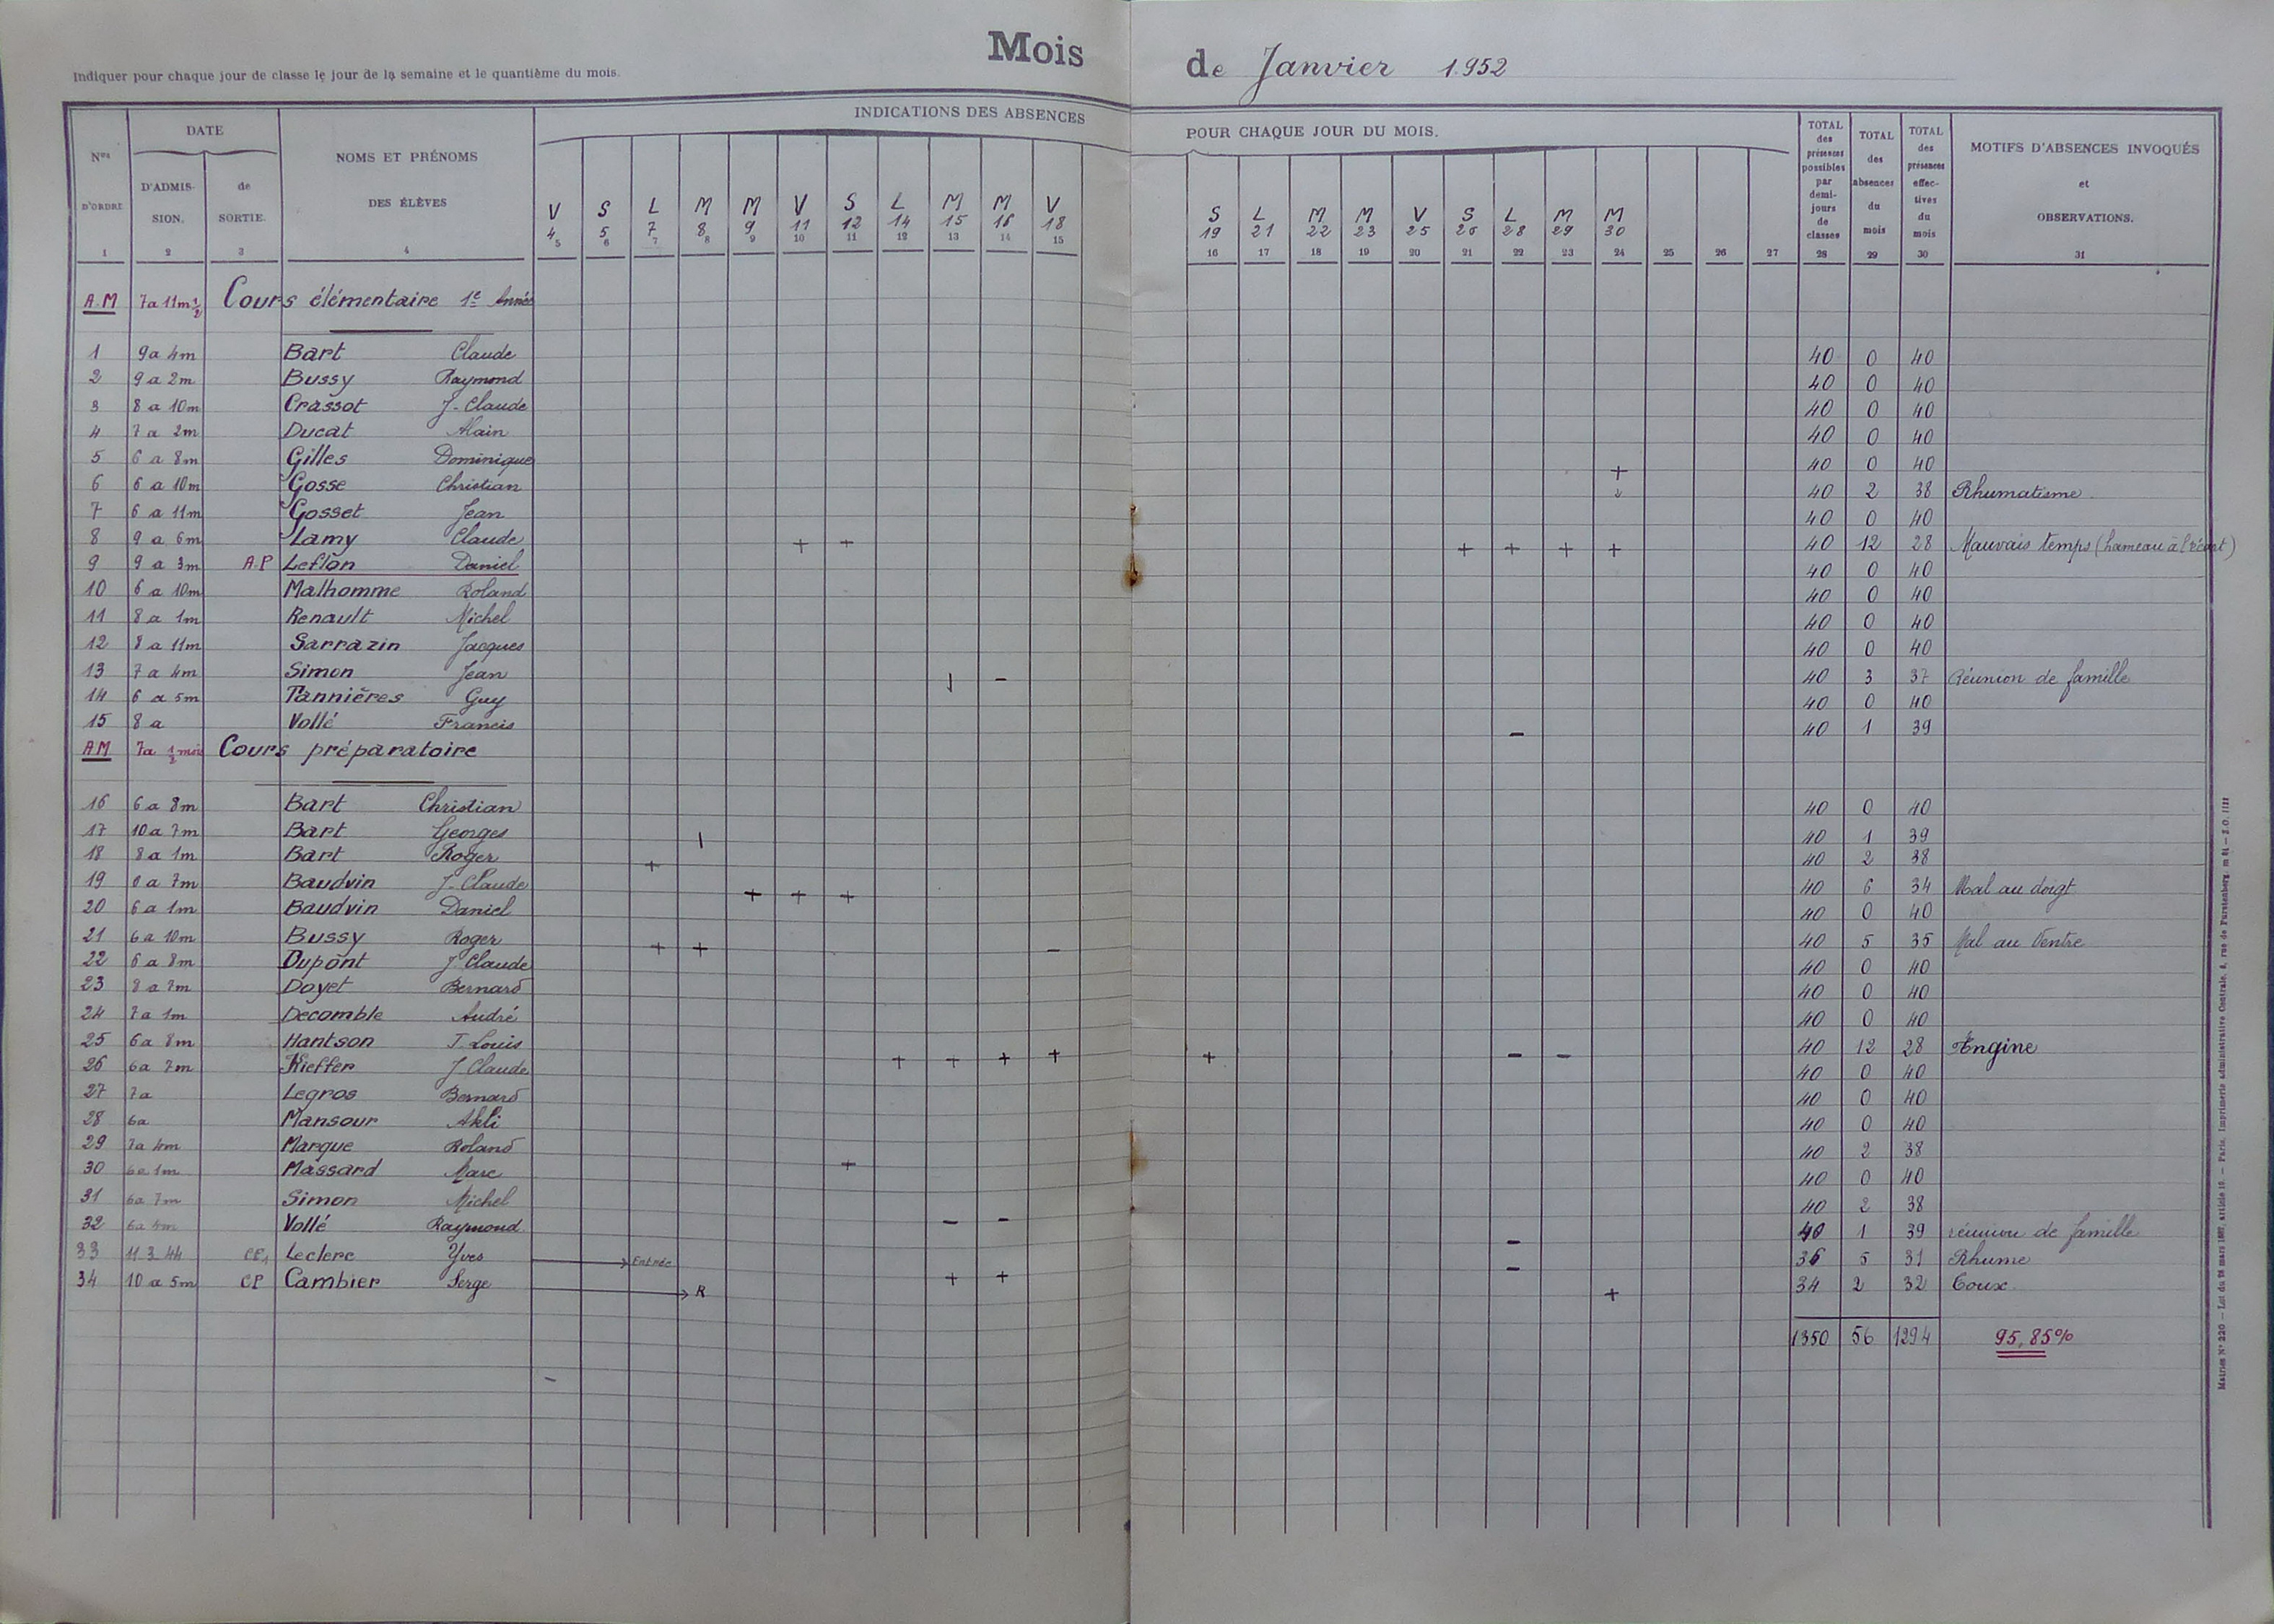 Indiquer pour chaque jour de classe le jour de la semaine et le quantième du mois.
Mois de Janvier 1952
INDICATIONS DES ABSENCES POUR CHAQUE JOUR DU MOIS.
Nos D'ORDRE 1
DATE D'ADMISSION. 2
de SORTIE. 3
NOMS ET PRÉNOMS DES ÉLÈVES 4
V S L M M V S L M M V S L M M V S L M M
4 5 7 8 9 11 12 14 15 16 18 19 21 22 23 25 26 28 29 30
5 6 7 8 9 10 11 12 13 14 15 16 17 18 19 20 21 22 23 24 25 26 27
TOTAL des présences possibles par demi-jours de classes 28
TOTAL des absences du mois 29
TOTAL des présences effectives du mois 30
MOTIFS D'ABSENCES INVOQUÉS et OBSERVATIONS. 31
A.M 7a 11m 1/2 Cours élémentaire 1e Année
1 9a 4m Bart Claude 40 0 40
2 9a 2m Bussy Raymond 40 0 40
3 8a 10m Crassot J-Claude 40 0 40
4 7a 2m Ducat Alain 40 0 40
5 6a 8m Gilles Dominique 40 0 40
6 6a 10m Gosse Christian + 2 40 2 38 Rhumatisme.
7 6a 11m Gosset Jean 40 0 40
8 9a 6m Lamy Claude + + + + + + 40 12 28 Mauvais temps (hameau à l'écart)
9 9a 3m A.P Leflon Daniel 40 0 40
10 6a 10m Malhomme Roland 40 0 40
11 8a 1m Renault Michel 40 0 40
12 8a 11m Sarrazin Jacques 40 0 40
13 7a 4m Simon Jean | - 40 3 37 Réunion de famille
14 6a 5m Tannières Guy 40 0 40
15 8a Vollé Francis - 40 1 39
AM 7a 1/2 mois Cours préparatoire
16 6a 8m Bart Christian 40 0 40
17 10a 7m Bart Georges | 40 1 39
18 8a 1m Bart Roger + 40 2 38
19 a 7m Baudvin J-Claude + + + 40 6 34 Mal au doigt
20 6a 1m Baudvin Daniel 40 0 40
21 6a 10m Bussy Roger + + - 40 5 35 Mal au Ventre
22 6a 8m Dupont J Claude 40 0 40
23 8a 7m Doyet Bernard 40 0 40
24 7a 1m Decomble André 40 0 40
25 6a 8m Hantson J Louis 40 12 28 Angine
26 6a 7m Kieffer J Claude + + + + + - - 40 0 40
27 7a Legros Bernard 40 0 40
28 6a Mansour Akli 40 0 40
29 7a 4m Marque Roland 40 2 38
30 6a 1m Massard Marc + 40 0 40
31 6a 7m Simon Michel 40 2 38
32 6a 4m Vollé Raymond - - - 40 1 39 réunion de famille
33 11.3.44 CE1 Leclerc Yves Entrée - 36 5 31 Rhume
34 10a 5m CP Cambier Serge R + + + 34 2 32 Toux.
1350 56 1294 95,85%